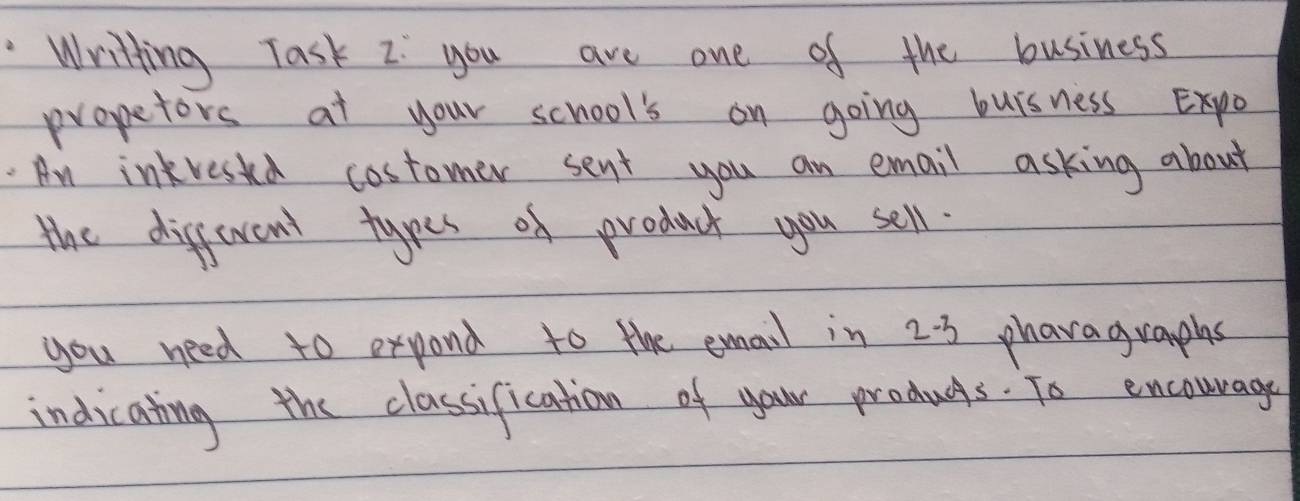 • Writting Task 2: you are one of the business
propetors at your school's on going buisness Expo
• An intrested costomer sent you an email asking about
the different types of product you sell.
you need to expond to the email in 2-3 pharagraphs
indicating the classification of your products. To encourage